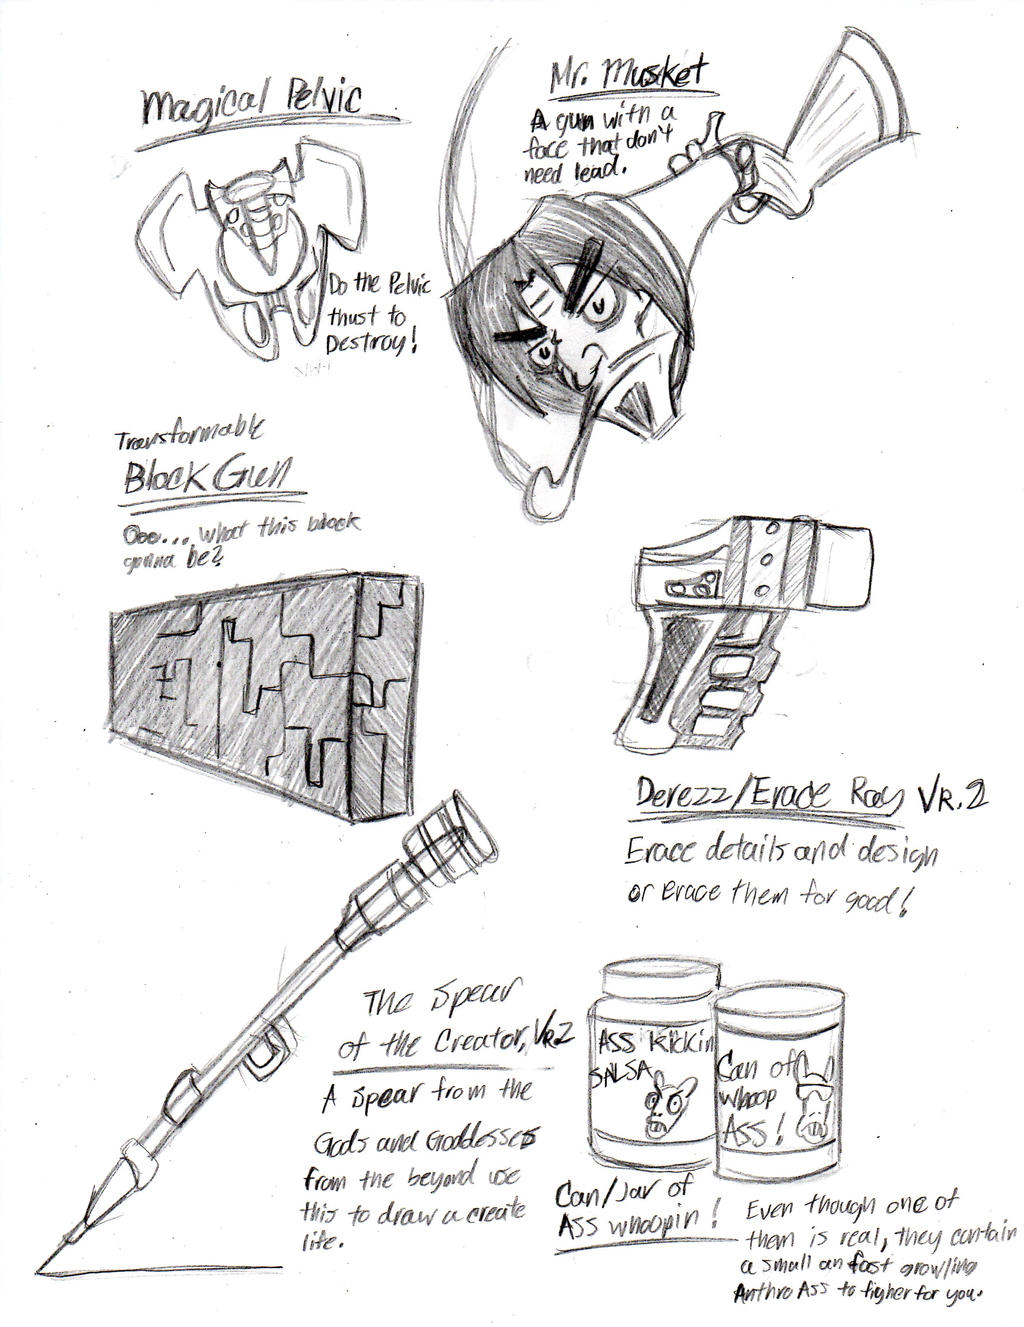 Magical Pelvic
Do the Pelvic
thust to
Destroy!
Mr. Musket
A gun with a
face that don't
need lead.
Transformable
Block Gun
Ooo... what this block
gonna be?
Derezz/Erace Ray Vr.2
Erace details and design
or erace them for good!
The Spear
of the Creator, Vr.2
A spear from the
Gods and Goddesses
from the beyond use
this to draw a create
life.
ASS KICKIN
SALSA
Can of
whoop
ASS!
Can/Jar of
ASS whoopin!
Even though one of
them is real, they contain
a small an fast growling
Anthro Ass to figher for you.